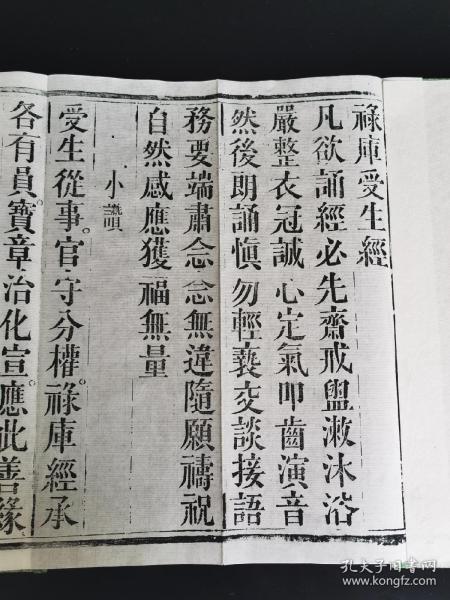 祿庫受生經
凡欲誦經必先齋戒盥漱沐浴
嚴整衣冠誠心定氣叩齒演音
然後朗誦慎勿輕褻交談接語
務要端肅念念無違隨願禱祝
自然感應獲福無量
小讚唄
受生從事。官守分權。祿庫經承
各有員。寶章治化宣。應此善緣
孔夫子旧书网
www.kongfz.com